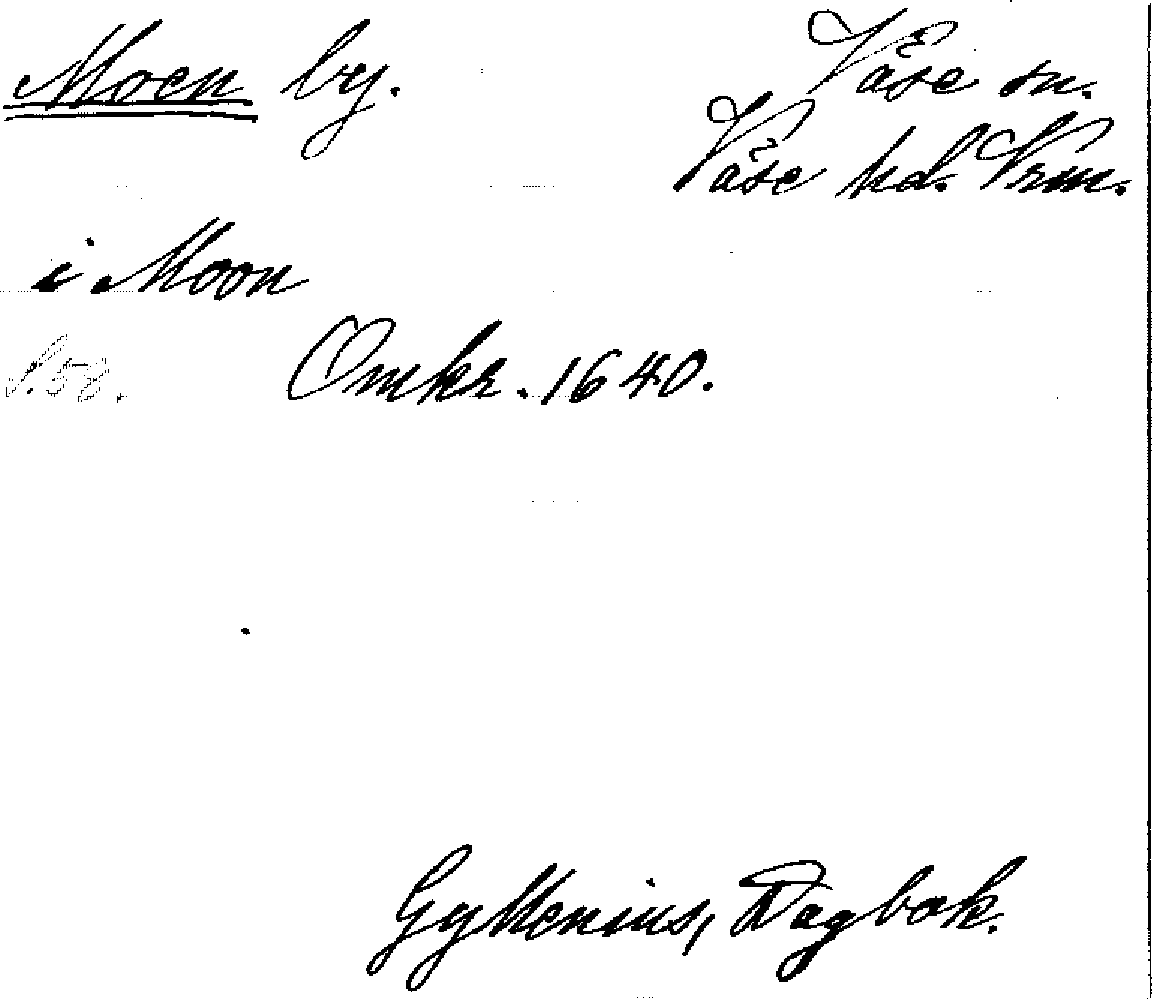 Moen by.
Väse sn.
Väse hd. Vrm.
i Moon
S. 58. Omkr. 1640.
Gyllenius, Dagbok.